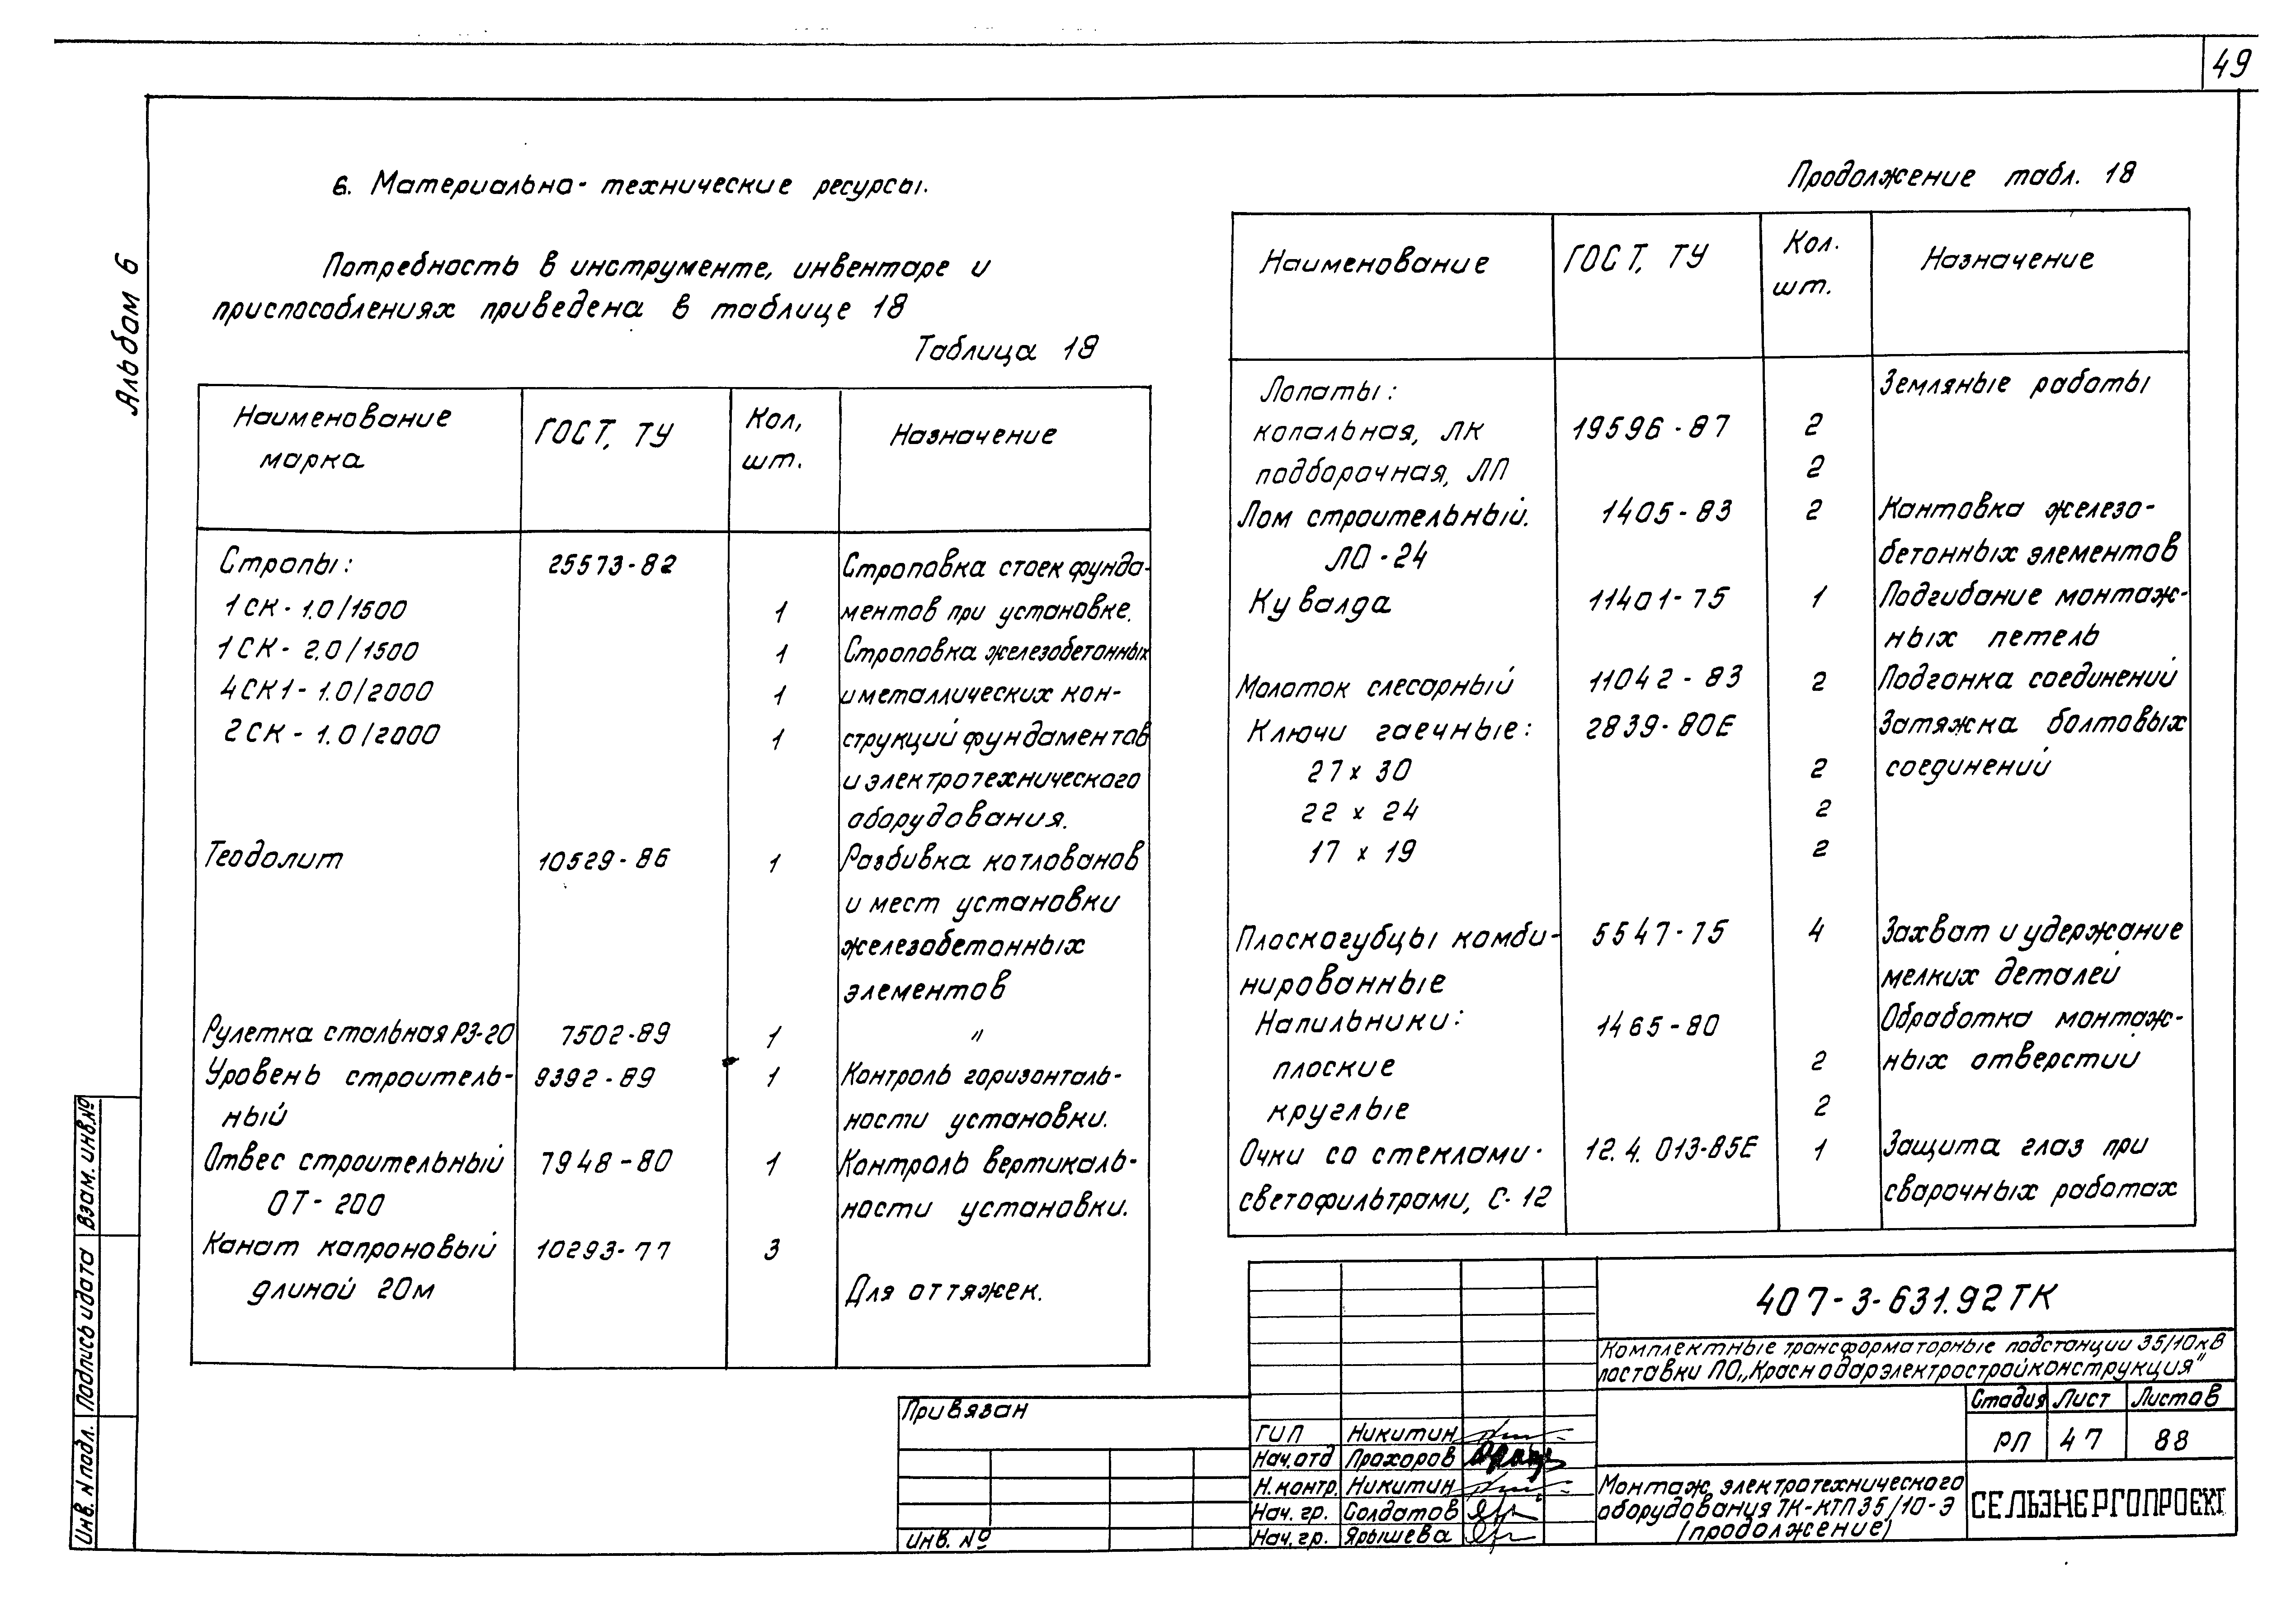 49
Альбом 6
6. Материально-технические ресурсы.
Потребность в инструменте, инвентаре и
приспособлениях приведена в таблице 18
Таблица 18
Наименование марка | ГОСТ, ТУ | Кол, шт. | Назначение
Стропы: 25573-82 Строповка стоек фунда-
1СК-1.0/1500 1 ментов при установке.
1СК-2.0/1500 1 Строповка железобетонных
4СК1-1.0/2000 1 и металлических кон-
2СК-1.0/2000 1 струкций фундаментов
и электротехнического
оборудования.
Теодолит 10529-86 1 Разбивка котлованов
и мест установки
железобетонных
элементов
Рулетка стальная РЗ-20 7502-89 1 "
Уровень строитель- 9392-89 1 Контроль горизонталь-
ный ности установки.
Отвес строительный 7948-80 1 Контроль вертикаль-
ОТ-200 ности установки.
Канат капроновый 10293-77 3
длиной 20м Для оттяжек.
Продолжение табл. 18
Наименование | ГОСТ, ТУ | Кол. шт. | Назначение
Лопаты: Земляные работы
копальная, ЛК 19596-87 2
подборочная, ЛП 2
Лом строительный. 1405-83 2 Кантовка железо-
ЛО-24 бетонных элементов
Кувалда 11401-75 1 Подгибание монтаж-
ных петель
Молоток слесарный 11042-83 2 Подгонка соединений
Ключи гаечные: 2839-80Е Затяжка болтовых
27 х 30 2 соединений
22 х 24 2
17 х 19 2
Плоскогубцы комби- 5547-75 4 Захват и удержание
нированные мелких деталей
Напильники: 1465-80 Обработка монтаж-
плоские 2 ных отверстий
круглые 2
Очки со стеклами- 12.4.013-85Е 1 Защита глаз при
светофильтрами, С-12 сварочных работах
407-3-631.92ТК
Комплектные трансформаторные подстанции 35/10кВ
поставки ПО „Краснодарэлектростройконструкция"
Стадия Лист Листов
РП 47 88
Монтаж электротехнического
оборудования ТК-КТП35/10-Э
(продолжение)
СЕЛЬЭНЕРГОПРОЕКТ
ГИП Никитин
Нач.отд Прохоров
Н.контр. Никитин
Нач. гр. Солдатов
Нач. гр. Ярышева
Привязан
Инв. №
Взам. инв.№
Подпись и дата
Инв. N подл.